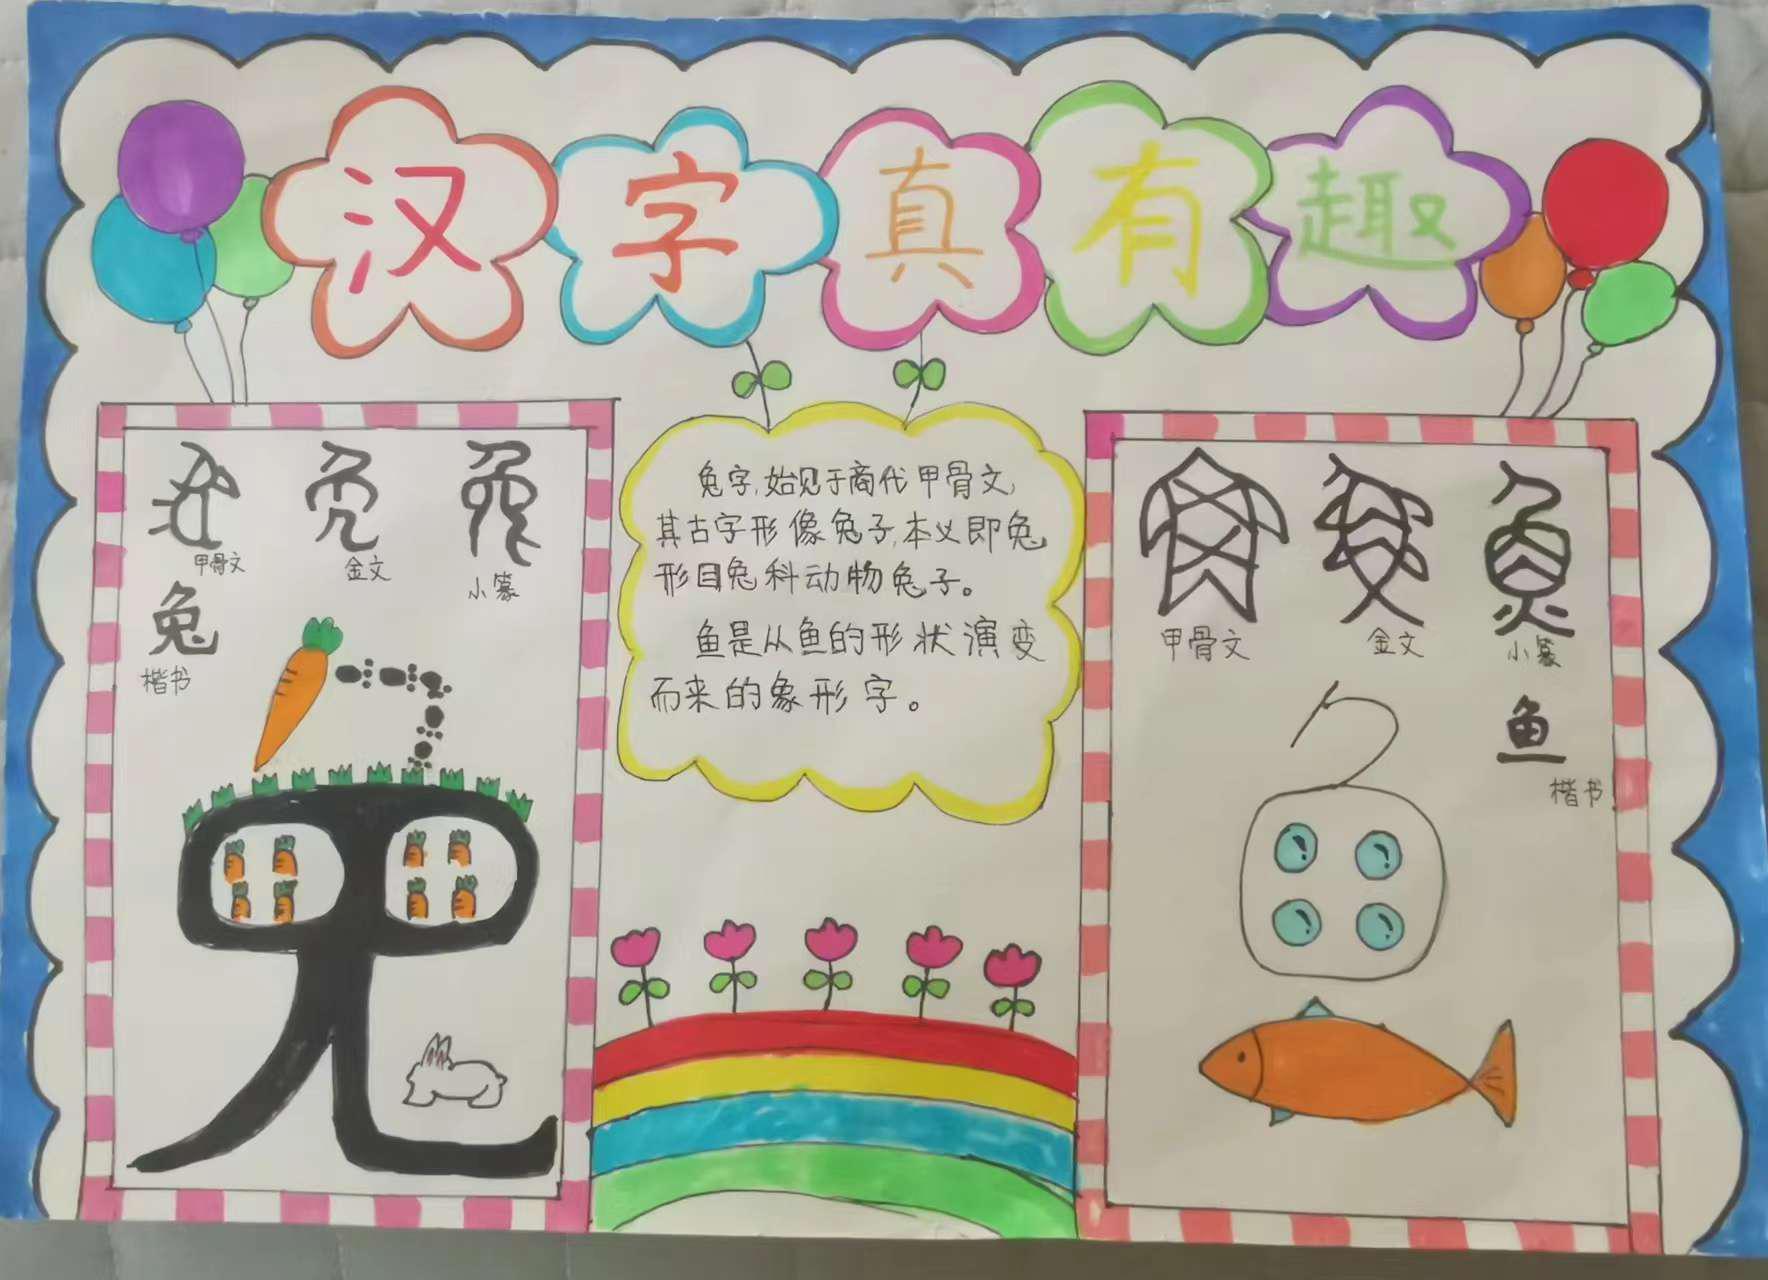 汉字真有趣
甲骨文
金文
小篆
兔
楷书
兔字,始见于商代甲骨文,
其古字形像兔子,本义即兔
形目兔科动物兔子。
鱼是从鱼的形状演变
而来的象形字。
甲骨文
金文
小篆
鱼
楷书